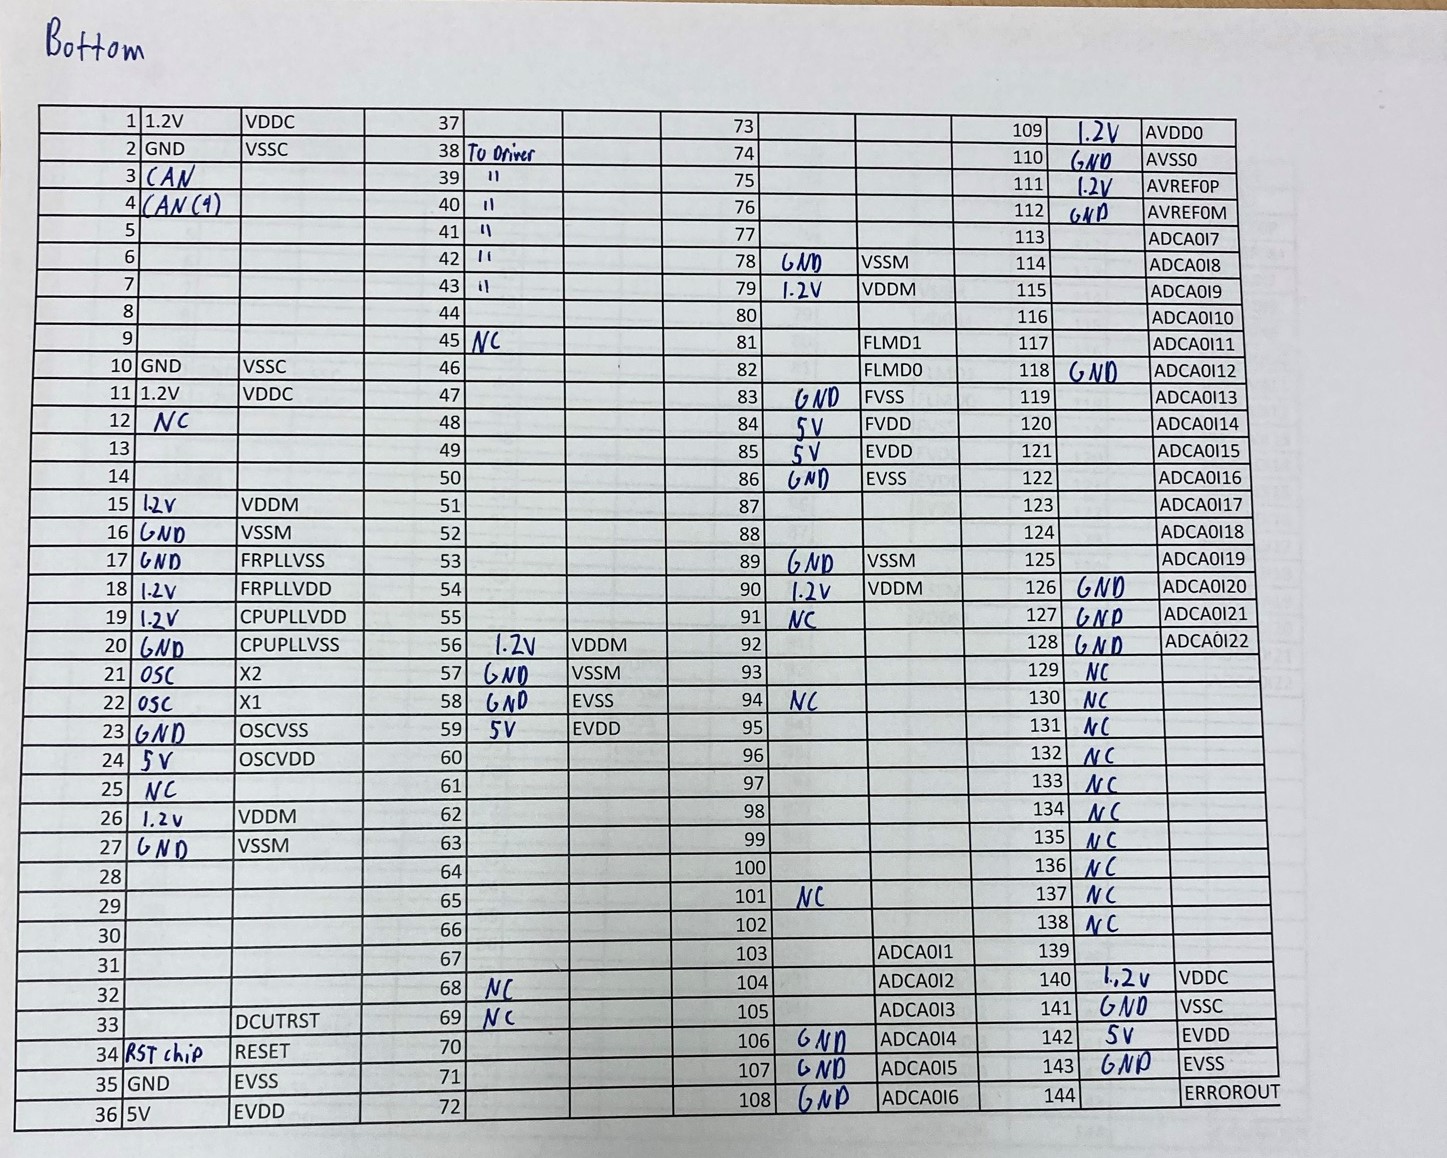 Bottom
1 1.2V VDDC 37 73 109 1.2V AVDD0
2 GND VSSC 38 To Driver 74 110 GND AVSS0
3 CAN 39 " 75 111 1.2V AVREF0P
4 CAN(4) 40 " 76 112 GND AVREF0M
5 41 " 77 113 ADCA0I7
6 42 " 78 GND VSSM 114 ADCA0I8
7 43 " 79 1.2V VDDM 115 ADCA0I9
8 44 80 116 ADCA0I10
9 45 NC 81 FLMD1 117 ADCA0I11
10 GND VSSC 46 82 FLMD0 118 GND ADCA0I12
11 1.2V VDDC 47 83 GND FVSS 119 ADCA0I13
12 NC 48 84 5V FVDD 120 ADCA0I14
13 49 85 5V EVDD 121 ADCA0I15
14 50 86 GND EVSS 122 ADCA0I16
15 1.2V VDDM 51 87 123 ADCA0I17
16 GND VSSM 52 88 124 ADCA0I18
17 GND FRPLLVSS 53 89 GND VSSM 125 ADCA0I19
18 1.2V FRPLLVDD 54 90 1.2V VDDM 126 GND ADCA0I20
19 1.2V CPUPLLVDD 55 91 NC 127 GND ADCA0I21
20 GND CPUPLLVSS 56 1.2V VDDM 92 128 GND ADCA0I22
21 OSC X2 57 GND VSSM 93 129 NC
22 OSC X1 58 GND EVSS 94 NC 130 NC
23 GND OSCVSS 59 5V EVDD 95 131 NC
24 5V OSCVDD 60 96 132 NC
25 NC 61 97 133 NC
26 1.2V VDDM 62 98 134 NC
27 GND VSSM 63 99 135 NC
28 64 100 136 NC
29 65 101 NC 137 NC
30 66 102 138 NC
31 67 103 ADCA0I1 139
32 68 NC 104 ADCA0I2 140 1.2V VDDC
33 DCUTRST 69 NC 105 ADCA0I3 141 GND VSSC
34 RST chip RESET 70 106 GND ADCA0I4 142 5V EVDD
35 GND EVSS 71 107 GND ADCA0I5 143 GND EVSS
36 5V EVDD 72 108 GND ADCA0I6 144 ERROROUT